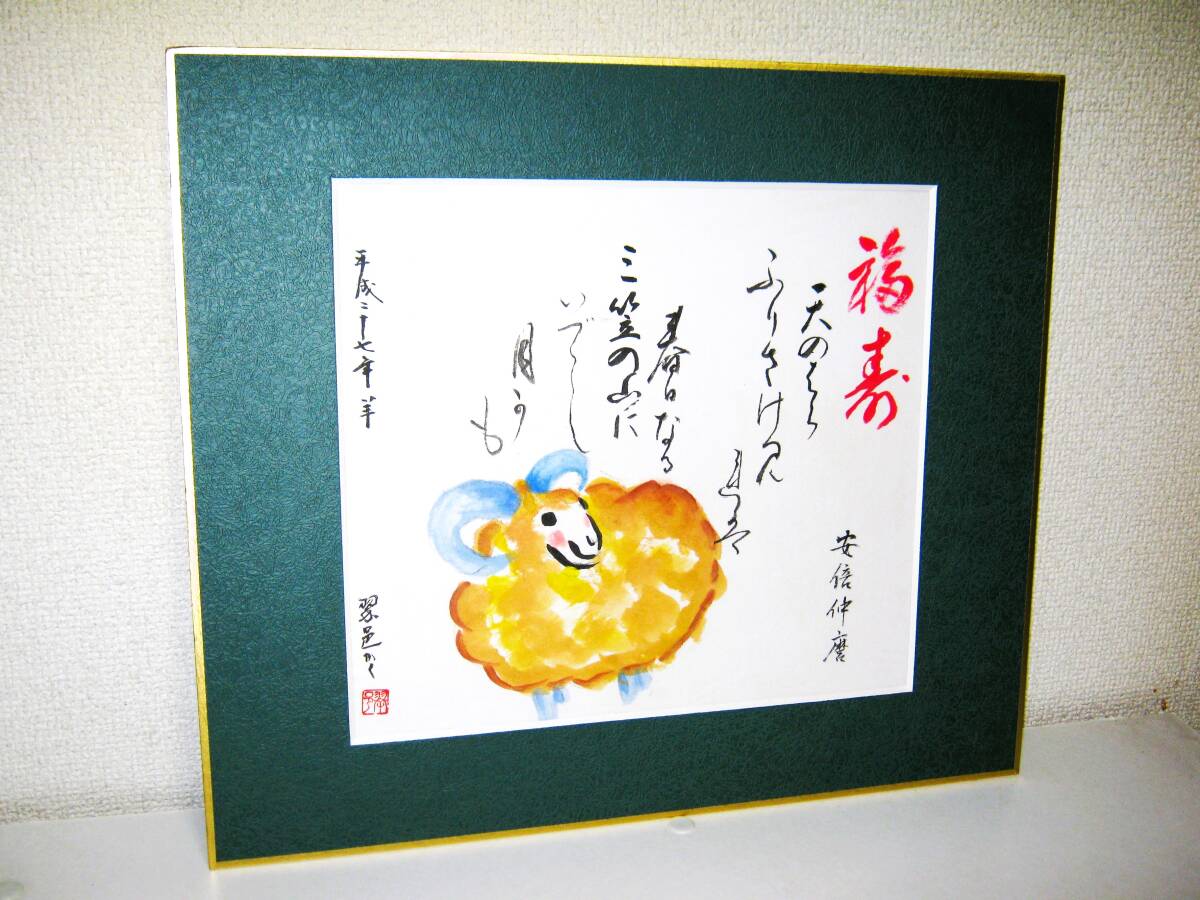 福寿
天のはら
ふりさけ
安倍仲麿
春日なる
三笠の山に
いでし
月可
も
平成二十七年羊
翠邑かく